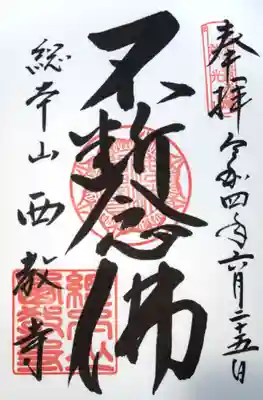 奉拝 令和四年六月二十五日
不断念佛
総本山 西教寺